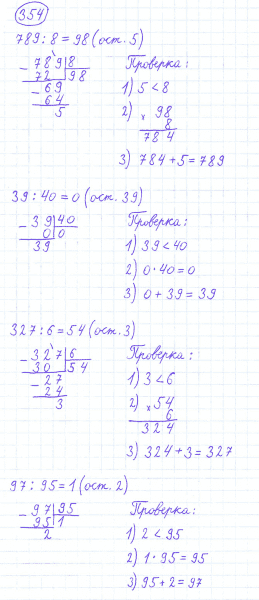 354
789 : 8 = 98 (ост. 5)
789 8 Проверка:
72 98 1) 5 < 8
69 2) × 98
64 8
5 784
3) 784 + 5 = 789
39 : 40 = 0 (ост. 39)
39 40 Проверка:
0 0 1) 39 < 40
39 2) 0 · 40 = 0
3) 0 + 39 = 39
327 : 6 = 54 (ост. 3)
327 6 Проверка:
30 54 1) 3 < 6
27 2) × 54
24 6
3 324
3) 324 + 3 = 327
97 : 95 = 1 (ост. 2)
97 95 Проверка:
95 1 1) 2 < 95
2 2) 1 · 95 = 95
3) 95 + 2 = 97